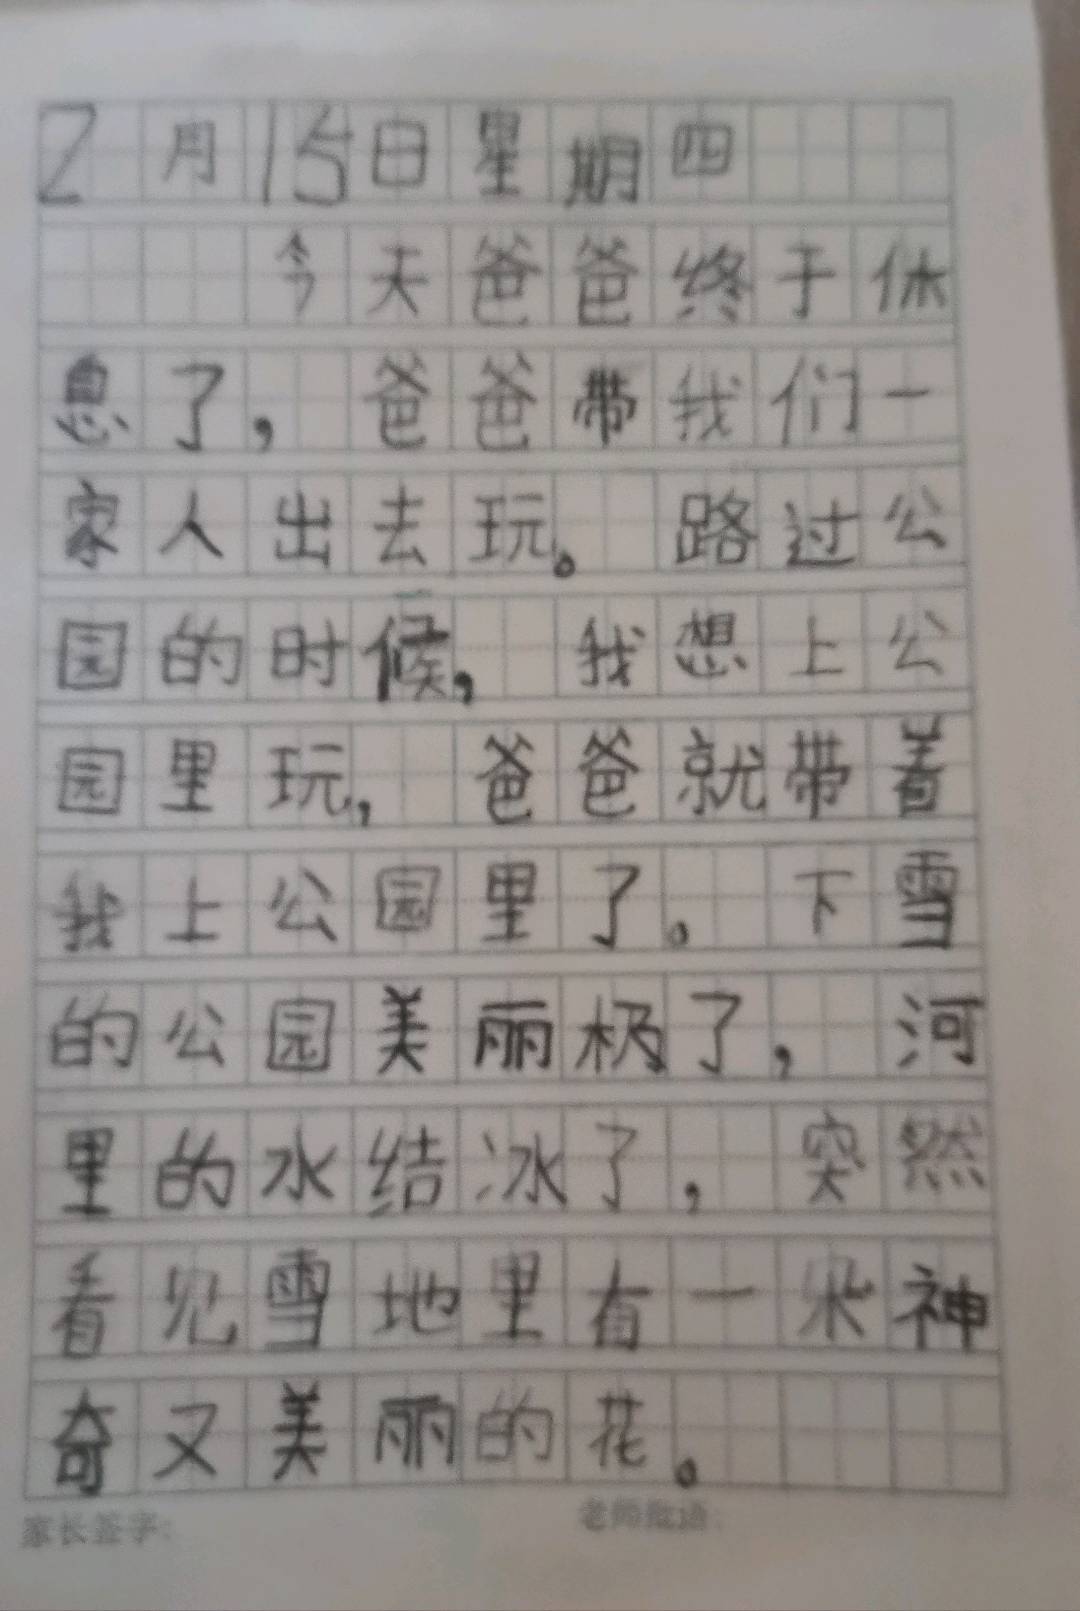 2月15日星期四
今天爸爸终于休
息了，爸爸带我们一
家人出去玩。路过公
园的时候，我想上公
园里玩，爸爸就带着
我上公园里了。下雪
的公园美丽极了，河
里的水结冰了，突然
看见雪地里有一米神
奇又美丽的花。
家长签字：
老师批语：